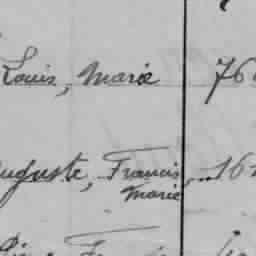 Louis, Marie 76
Auguste, Francis, 16
Marie